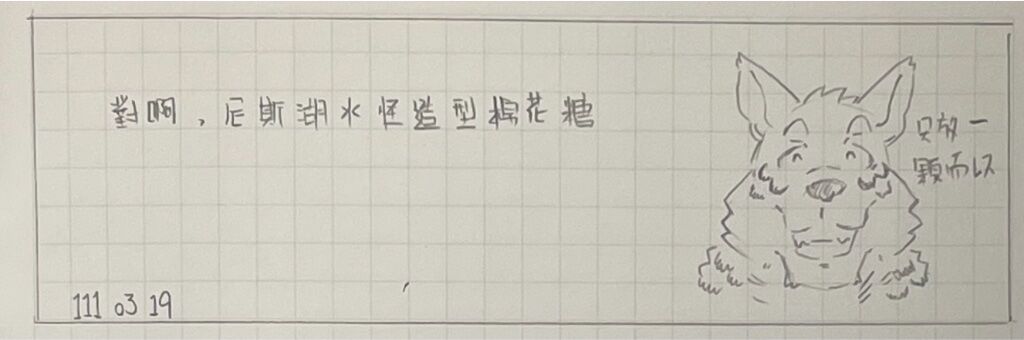 對啊，尼斯湖水怪造型棉花糖
只放一
顆而以
111 03 19